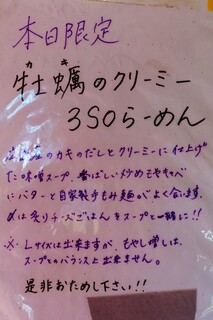 本日限定
牡蠣のクリーミー
カキ
3SOらーめん
のカキのだしとクリーミーに仕上げ
た味噌スープ、香ばしい
にバターと自家製手もみ麺がよく合います。
〆は炙りチーズごはんをスープと一緒に!!
※Lサイズは出来ますが、もやし増しは、
スープとのバランス上出来ません。
是非おためし下さい!!